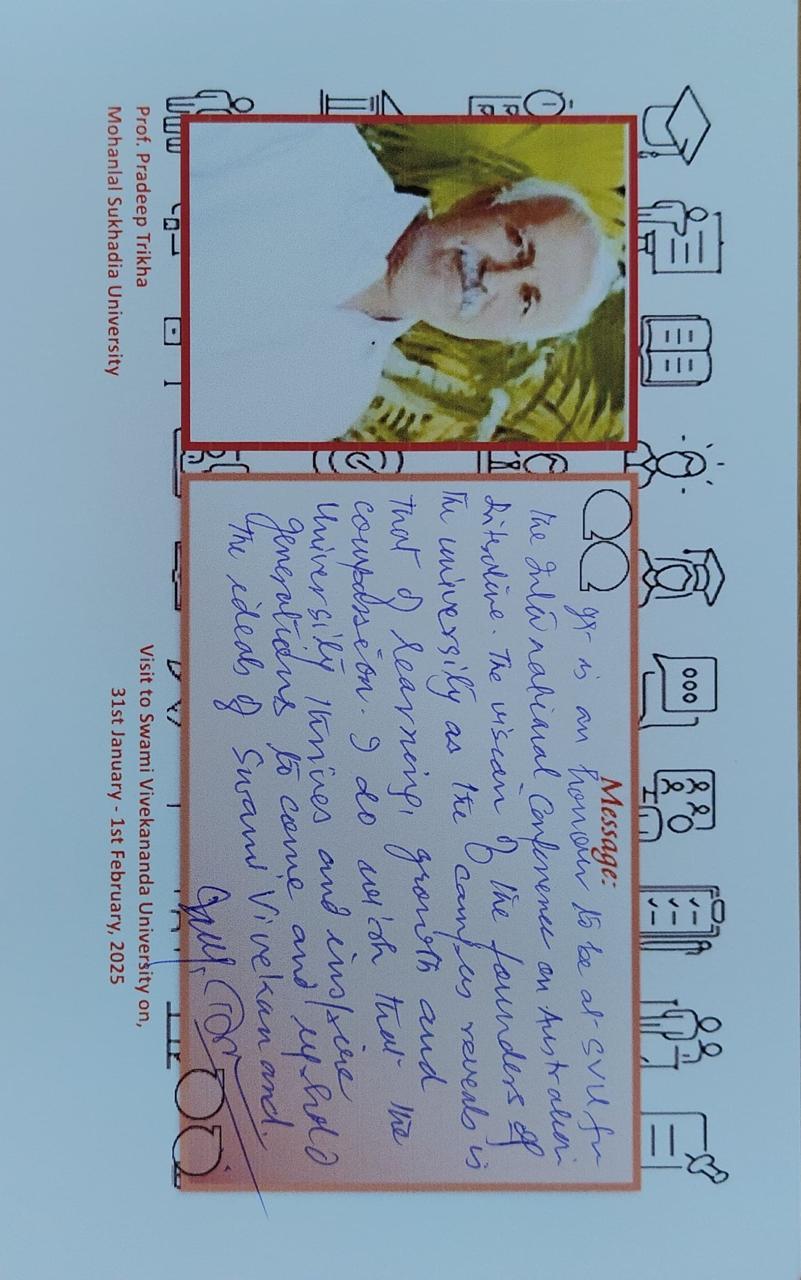 Message:
It is an honour to be at SVU for
the International Conference on Australian
Literature. The vision of the founders of
the university as the campus reveals is
that of learning, growth and
compassion. I do wish that the
University thrives and inspire
generations to come and uphold
the ideals of Swami Vivekanand.
Prof. Pradeep Trikha
Mohanlal Sukhadia University
Visit to Swami Vivekananda University on,
31st January - 1st February, 2025